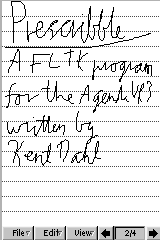 Prescribble
A FLTK program
for the Agenda VR3
written by
Kent Dahl
File Edit View 2/4